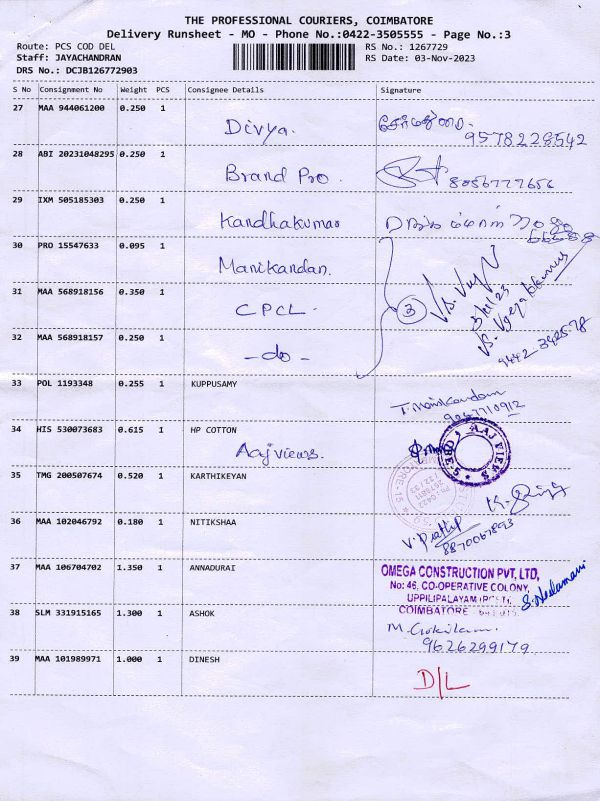 THE PROFESSIONAL COURIERS, COIMBATORE
Delivery Runsheet - MO - Phone No.:0422-3505555 - Page No.:3
Route: PCS COD DEL RS No.: 1267729
Staff: JAYACHANDRAN RS Date: 03-Nov-2023
DRS No.: DCJB126772903
S No Consignment No Weight PCS Consignee Details Signature
27 MAA 944061200 0.250 1
Divya. 9578228542
28 ABI 20231048295 0.250 1
Brand Pro. 8056777656
29 IXM 505185303 0.250 1
Kandhakumar
30 PRO 15547633 0.095 1
Manikandan.
31 MAA 568918156 0.350 1
CPCL. 3
32 MAA 568918157 0.250 1
-do-
33 POL 1193348 0.255 1 KUPPUSAMY
T. Manikandam
34 HIS 530073683 0.615 1 HP COTTON
Aaj views. AAJ VIEWS
35 TMG 200507674 0.520 1 KARTHIKEYAN
36 MAA 102046792 0.180 1 NITIKSHAA
V. Prathip
8870067893
37 MAA 106704702 1.350 1 ANNADURAI
OMEGA CONSTRUCTION PVT, LTD,
No: 46, CO-OPERATIVE COLONY,
UPPILIPALAYAM
COIMBATORE
S. Neelamani
38 SLM 331915165 1.300 1 ASHOK
9626299179
39 MAA 101989971 1.000 1 DINESH
D/L